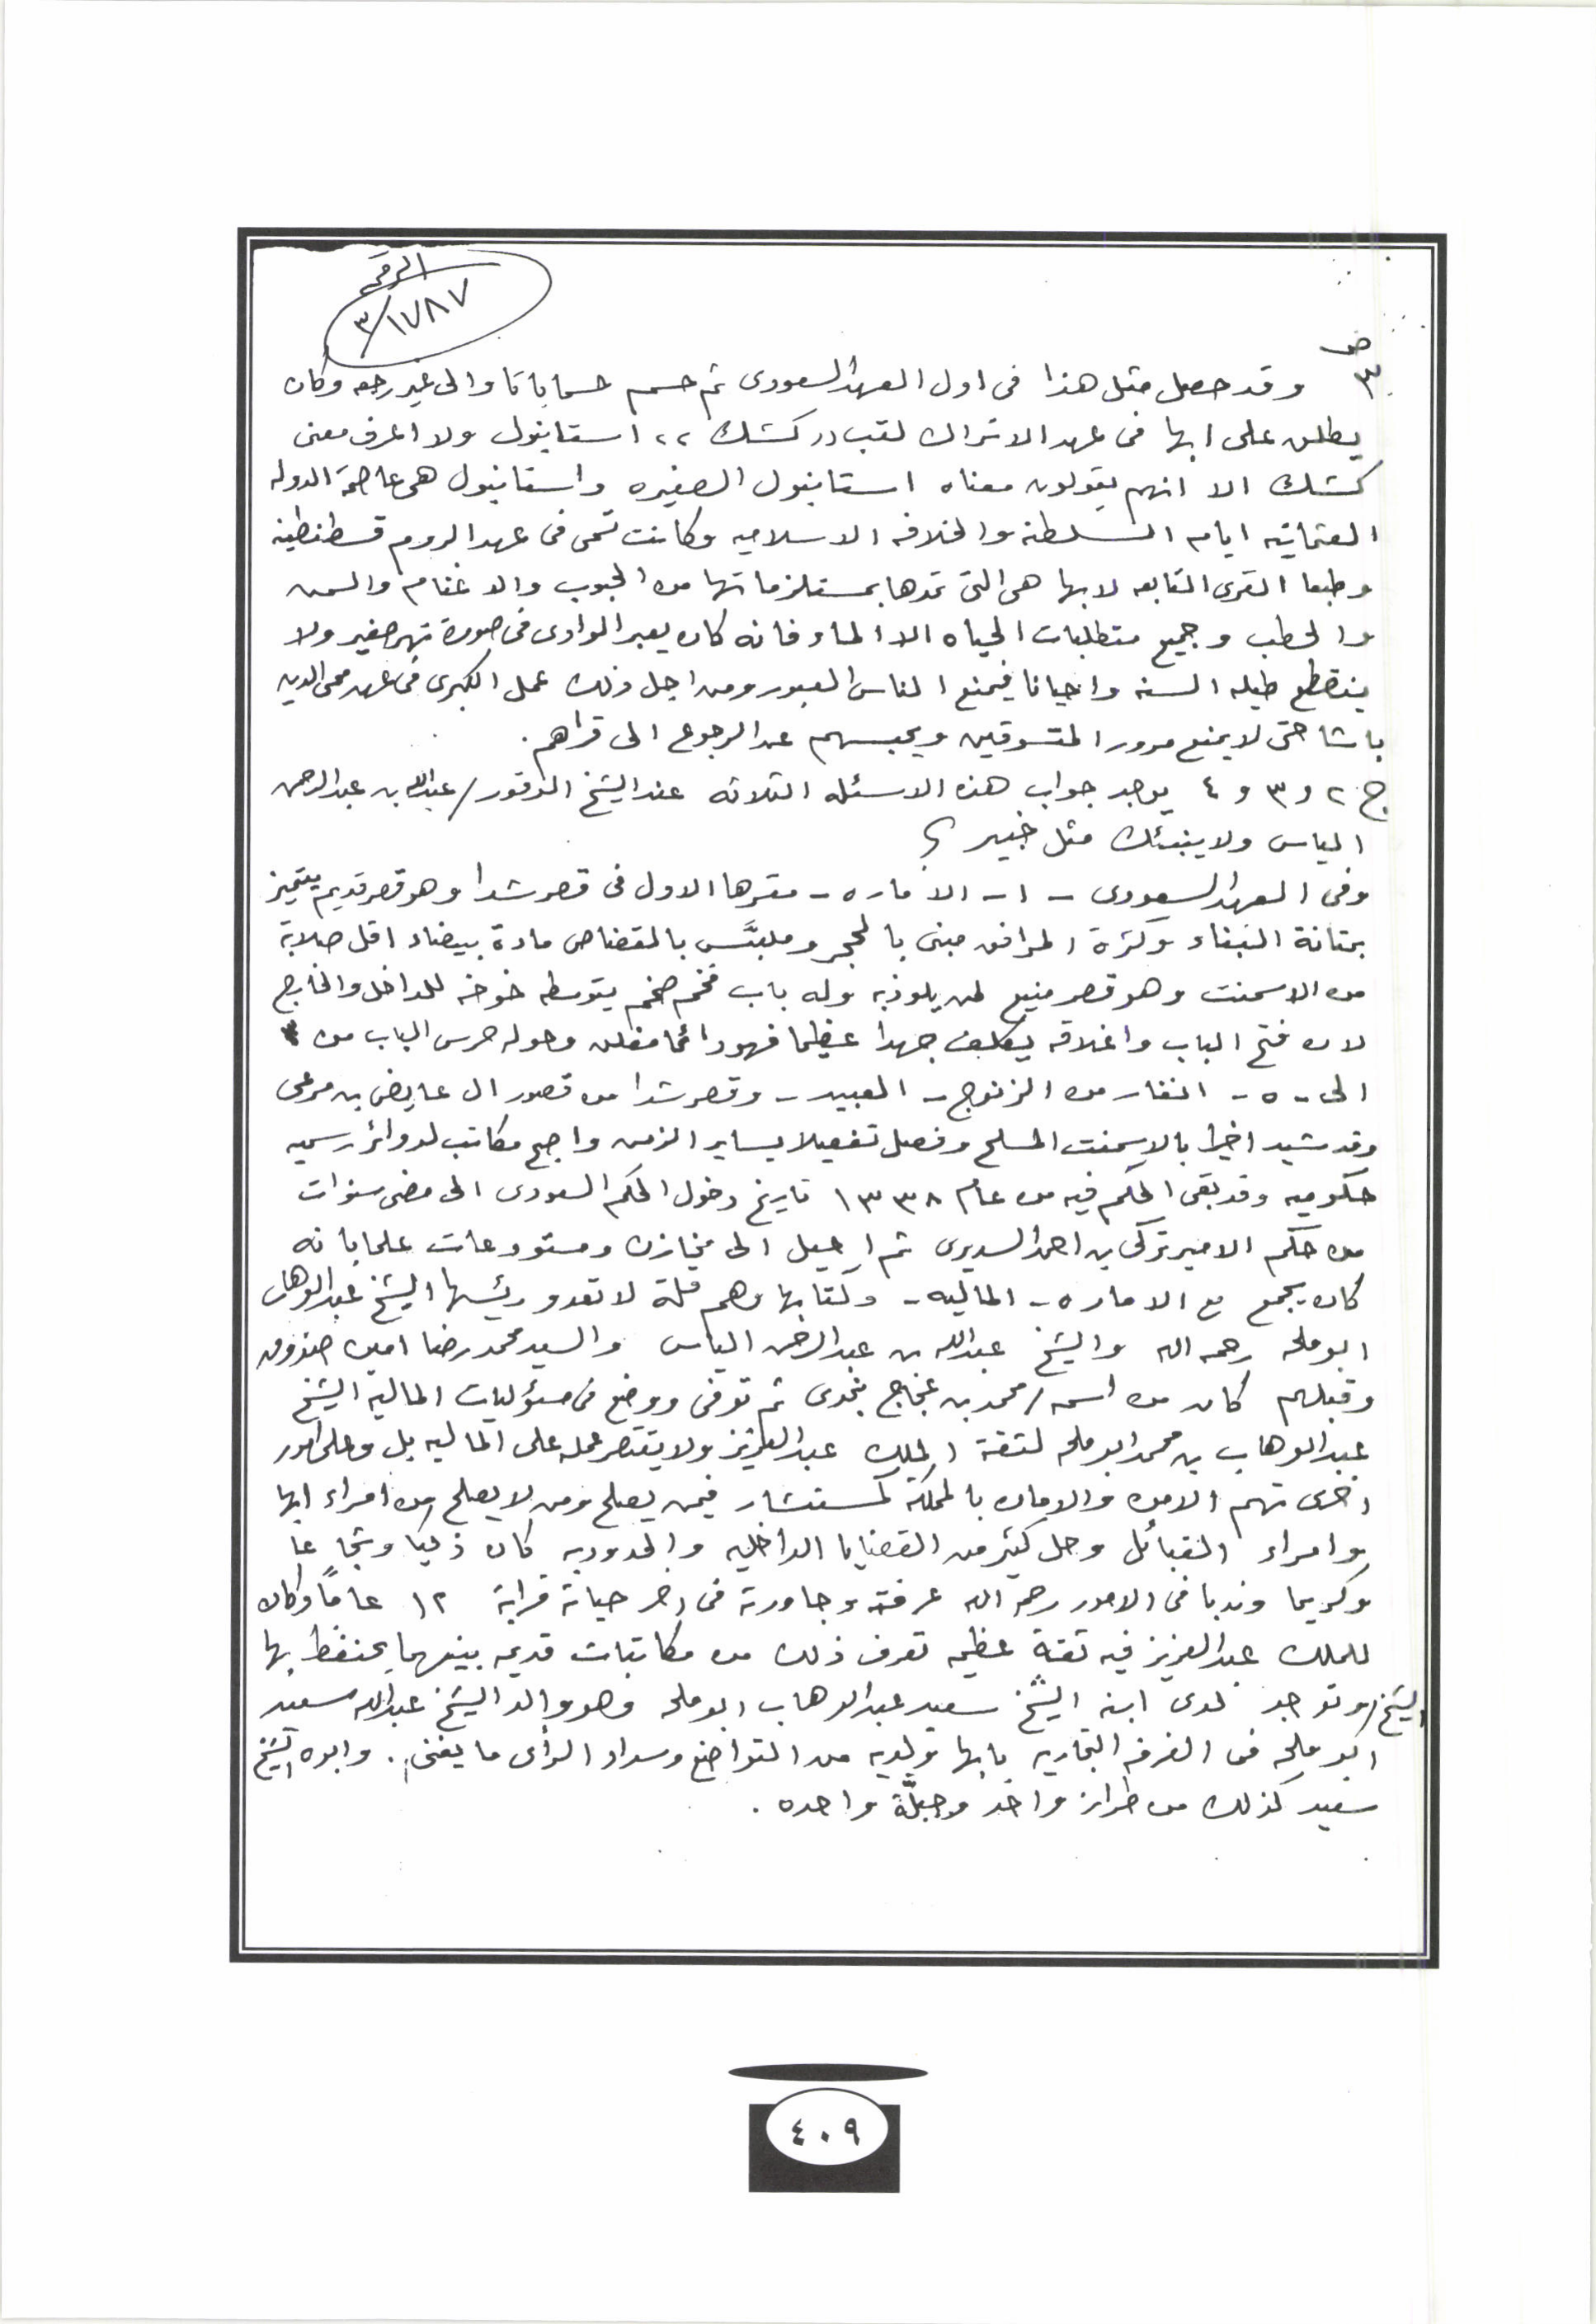 الرقم
٣/١٧٨٧
ص
٣ وقد حصل مثل هذا فى اول العهد السعودى ثم حسم حسما باتا والى غير رجعه وكان
يطلق على ابها فى عهد الاتراك لقب ,, كشك ،، استانبول ولا اعرف معنى
كشك الا انهم يقولون معناه استانبول الصغيره واستانبول هى عاصمة الدوله
العثمانيه ايام السلطنه والخلافه الاسلاميه وكانت تسمى فى عهد الروم قسطنطينه
وطبعا القرى التابعه لابها هى التى تمدها بمستلزماتها من الحبوب والاغنام والسمن
والحطب وجميع متطلبات الحياه الا الماء فانه كان يعبر الوادى فى صورة نهر صغير ولا
ينقطع طيله السنه واحيانا فيمنع الناس العبور ومن اجل ذلك عمل الكبرى فى عهد محى الدين
باشا حتى لا يمنع مرور المتسوقين ويحبسهم عن الرجوع الى قراهم .
ج ٢ و ٣ و ٤ يوجد جواب هذه الاسئله الثلاثه عند الشيخ الوقور / عبدالله بن عبدالرحمن
الياس ولا ينبئك مثل خبير
وفى العهد السعودى - ١ - الاماره - مقرها الاول فى قصر شدا وهو قصر قديم يتميز
بمتانة البناء وكثرة المرافق مبنى بالحجر وملبَّس بالقضاض مادة بيضاء اقل صلابة
من الاسمنت وهو قصر منيع لمن يلوذ به وله باب فخم ضخم يتوسطه خوخه للداخل والخارج
لان فتح الباب واغلاقه يكلف جهدا عظيما فهو دائما مغلق وحوله حرس الباب من ٣
الى - ٥ - انفار من الزنوج - العبيد - وقصر شدا من قصور ال عايض بن مرعى
وقد شيد اخيرا بالاسمنت المسلح وفصل تفصيلا يساير الزمن واصبح مكاتب لدوائر رسميه
حكوميه وقد بقى الحكم فيه من عام ١٣٣٨ تاريخ دخول الحكم السعودى الى مضى سنوات
من حكم الامير تركى بن احمد السديرى ثم احيل الى مخازن ومستودعات علما بانه
كان يجمع مع الاماره - الماليه - وكتابها وهم قلة لا تعدو رئيسها الشيخ عبدالوهاب
ابو ملحه رحمه الله والشيخ عبدالله بن عبدالرحمن الياس والسيد محمد رضا امين صندوق
وقبلهم كان من اسمه / محمد بن عجاج نجدى ثم توفى ووضع فى مسؤليات المالية الشيخ
عبدالوهاب بن محمد ابو ملحه لثقة الملك عبدالعزيز ولا يقتصر عمله على الماليه بل وعلى امور
اخرى تهم الامن والامان بالمملكة كمستشار فيمن يصلح ومن لا يصلح من امراء ابها
وامراء القبائل وحل كثير من القضايا الداخليه والحدوديه كان ذكيا وشجاعا
وكريما وندبا فى الامور رحمه الله عرفته وجاورته فى اخر حياته قرابة ١٢ عاماً وكان
للملك عبدالعزيز فيه ثقة عظيمه تعرف ذلك من مكاتبات قديمه بينهما يحتفظ بها
الشيخ / وتوجد لدى ابنه الشيخ سعيد عبدالوهاب ابو ملحه وهو والد الشيخ عبدالله سعيد
ابو ملحه فى الغرفه التجاريه بابها ولديه من التواضع وسداد الرأى ما يغنى . وابوه الشيخ
سعيد كذلك من طراز واحد وجبلَّة واحده .
٤٠٩